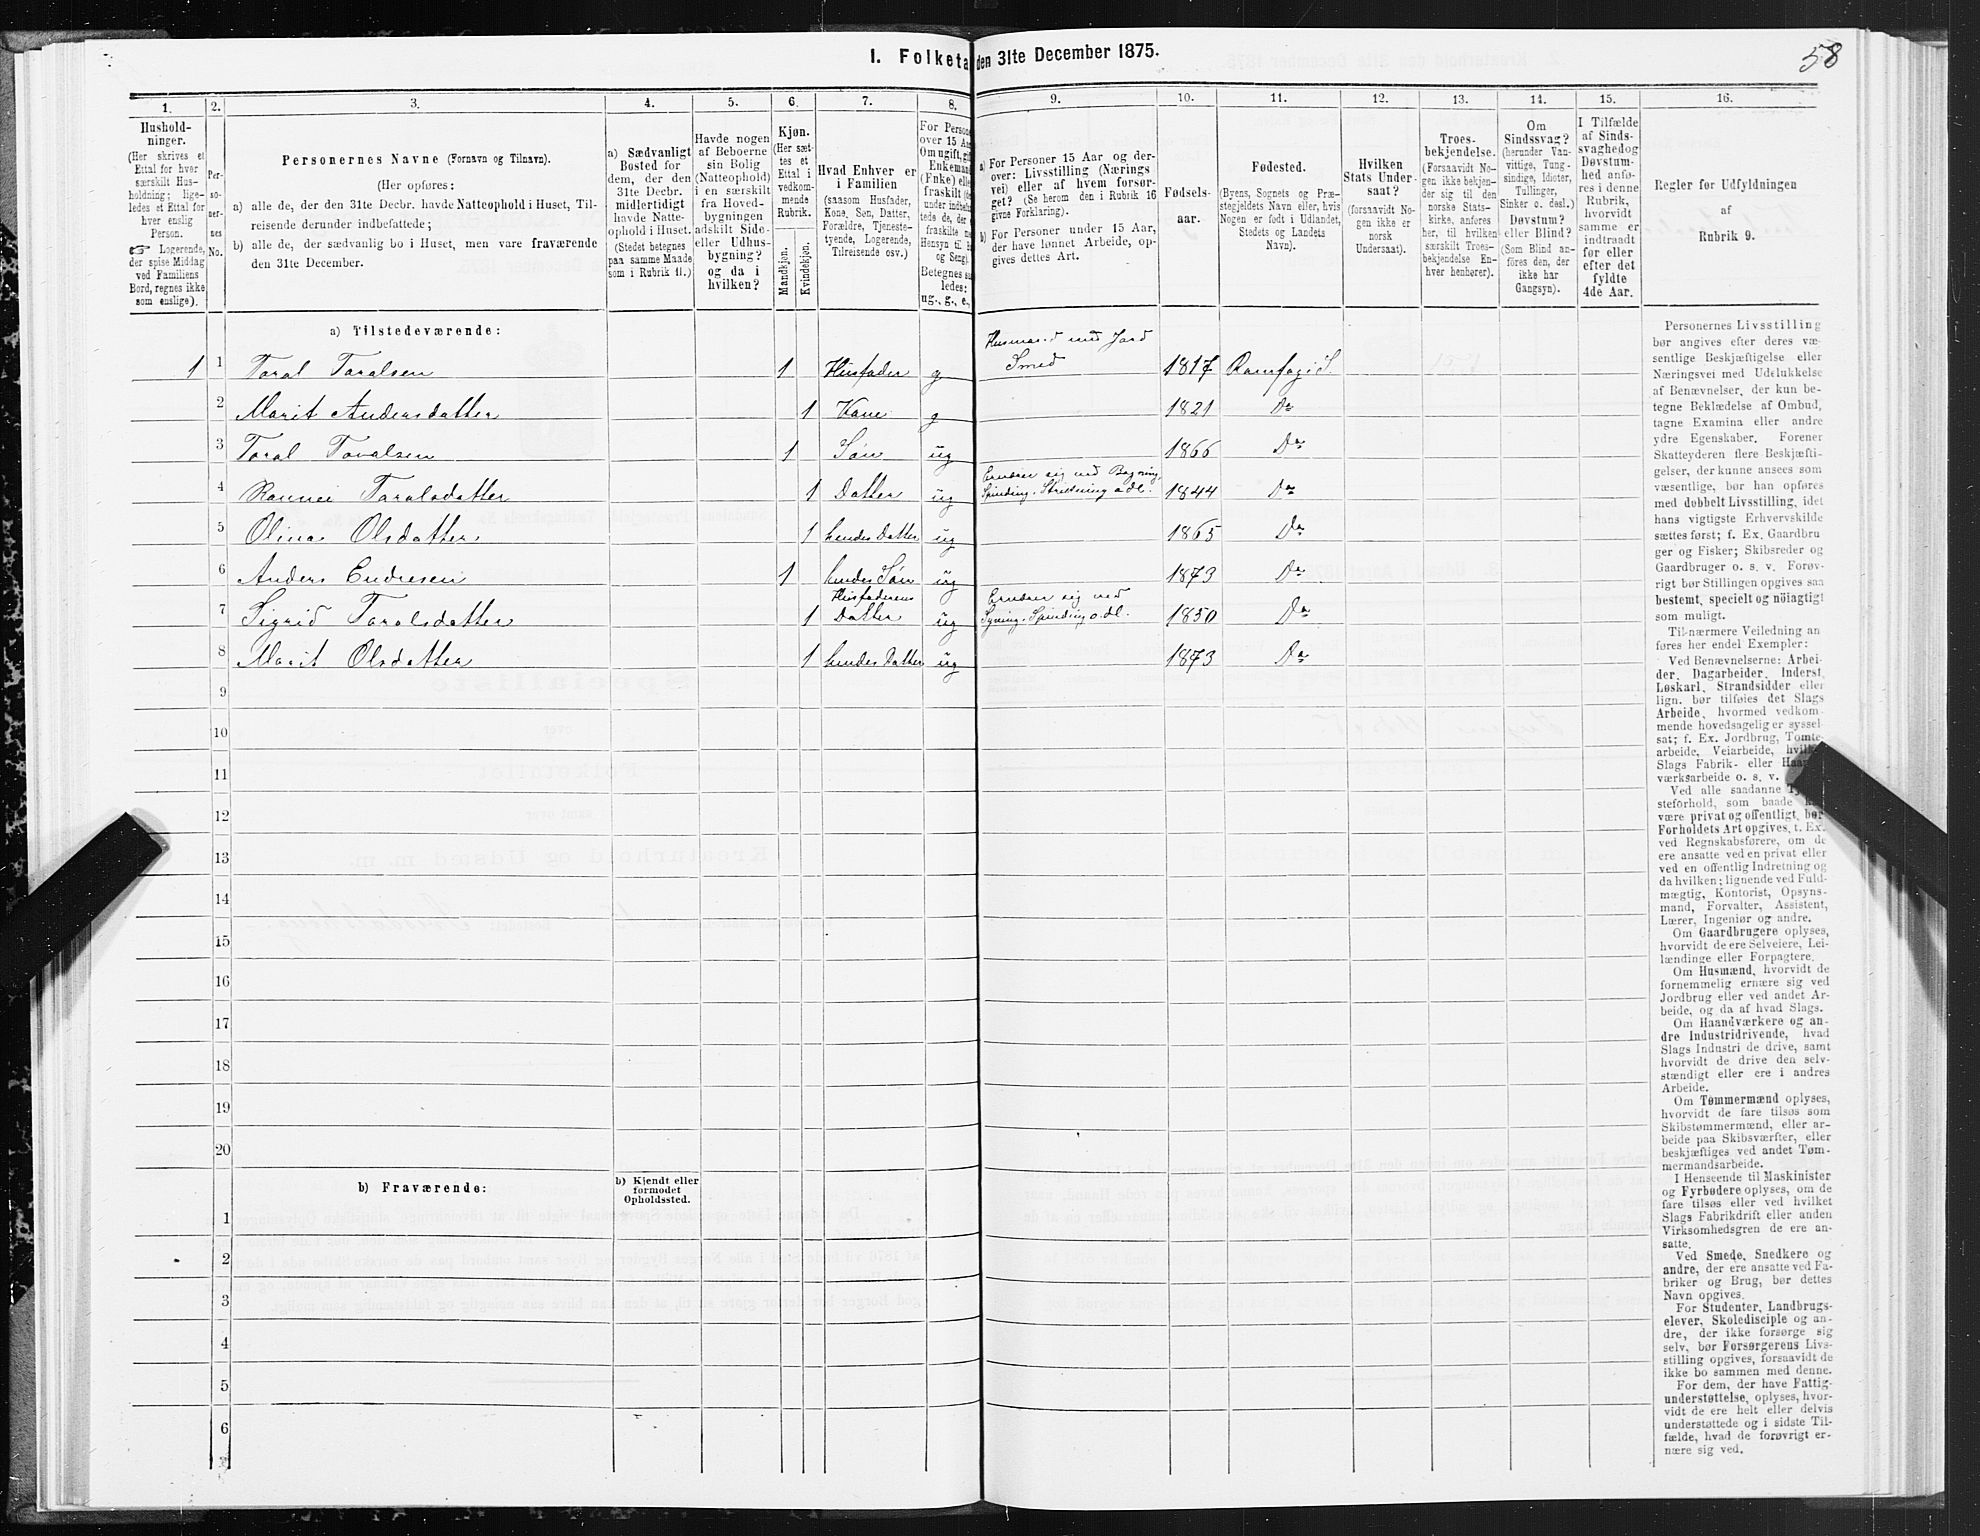 58
I. Folketa den 31te December 1875.
1. 2. 3. 4. 5. 6. 7. 8. 9. 10. 11. 12. 13. 14. 15. 16.
Hushold-
ninger.
(Her skrives et
Ettal for hver
særskilt Hus-
holdning; lige-
ledes et Ettal for
hver enslig
Person.
☞ Logerende,
der spise Middag
ved Familiens
Bord, regnes ikke
som enslige).
Per-
so-
ner-
nes
No.
Personernes Navne (Fornavn og Tilnavn).
(Her opføres:
a) alle de, der den 31te Decbr. havde Natteophold i Huset, Til-
reisende derunder indbefattede;
b) alle de, der sædvanlig bo i Huset, men vare fraværende
den 31te December.
a) Sædvanligt
Bosted for
dem, der den
31te Decbr.
midlertidigt
havde Natte-
ophold i Huset.
(Stedet betegnes
paa samme Maade
som i Rubrik 11.)
Havde nogen
af Beboerne
sin Bolig
(Natteophold)
i en særskilt
fra Hoved-
bygningen
adskilt Side-
eller Udhus-
bygning?
og da i
hvilken?
Kjøn.
(Her sæt-
tes et
Ettal i
vedkom-
mende
Rubrik.
Mandkjøn.
Kvindekjøn.
Hvad Enhver er
i Familien
(saasom Husfader,
Kone, Søn, Datter,
Forældre, Tjeneste-
tyende, Logerende,
Tilreisende osv.)
For Persone
over 15 Aa
Om ugift, gi
Enkeman
(Enke) elle
fraskilt
under indbefat
tede de, der
fraskilte
Hensyn til B
og Seng).
Betegnes saa
ledes:
ug., g., e.,
a) For Personer 15 Aar og der-
over: Livsstilling (Nærings-
vei) eller af hvem forsør-
get? (Se herom den i Rubrik 16
givne Forklaring).
b) For Personer under 15 Aar,
der have lønnet Arbeide, op-
gives dettes Art.
Fødsels-
aar.
Fødested.
(Byens, Sognets og Præ-
stegjeldets Navn eller, hvis
Nogen er født i Udlandet,
Stedets og Landets
Navn).
Hvilken
Stats Under-
saat?
(forsaavidt No-
gen ikke er
norsk
Undersaat).
Troes-
bekjendelse.
(Forsaavidt No-
gen ikke bekjen-
der sig til den
norske Stats-
kirke, anføres
her, til hvilken
særskilt Troes-
bekjendelse En-
hver henhører).
Om
Sindssvag?
(herunder Van-
vittige, Tung-
sindige, Idioter,
Tullinger,
Sinker o. desl.)
Døvstum?
eller Blind?
(Som Blind an-
føres den, der
ikke har
Gangsyn).
I Tilfælde
af Sinds-
svaghed og
Døvstum-
hed anfø-
res i denne
Rubrik,
hvorvidt
samme er
indtraadt
før eller
efter det
fyldte
4de Aar.
Regler for Udfyldningen
af
Rubrik 9.
a) Tilstedeværende:
1 1 Toral Toralsen 1 Husfader g Husmand med Jord Smed 1817 Romfogid S.
2 Marit Andersdatter 1 Kone g 1821 Do
3 Toral Toralsen 1 Søn ug 1866 Do
4 Rannei Toralsdatter 1 Datter ug Ernærer sig ved Bagning, Spinding, Strikning o dl. 1844 Do
5 Olina Olsdatter 1 hendes Datter ug 1865 Do
6 Anders Endresen 1 hendes Søn ug 1873 Do
7 Sigrid Toralsdatter 1 Husfaderens Datter ug Ernærer sig ved Syning, Spinding o. dl. 1850 Do
8 Marit Olsdatter 1 hendes Datter ug 1873 Do
9
10
11
12
13
14
15
16
17
18
19
20
b) Fraværende: b) Kjendt eller
formodet
Opholdssted.
1
2
3
4
5
6
Personernes Livsstilling
bør angives efter deres væ-
sentlige Beskjæftigelse eller
Næringsvei med Udelukkelse
af Benævnelser, der kun be-
tegne Beklædelse af Ombud,
tagne Examina eller andre
ydre Egenskaber. Forener
Skatteyderen flere Beskjæfti-
gelser, der kunne ansees som
væsentlige, bør han opføres
med dobbelt Livsstilling, idet
hans vigtigste Erhvervskilde
sættes først; f. Ex. Gaardbru
ger og Fisker; Skibsreder og
Gaardbruger o. s. v. Forøv-
rigt bør Stillingen opgives saa
bestemt, specielt og nöiagtigt
som muligt.
Til nærmere Veiledning an
føres her endel Exempler:
Ved Benævnelserne: Arbei-
der, Dagarbeider, Inderst,
Løskarl, Strandsidder eller
lign. bør tilføies det Slags
Arbeide, hvormed vedkom-
mende hovedsagelig er syssel-
sat; f. Ex. Jordbrug, Tomte-
arbeide, Veiarbeide, hvilket
Slags Fabrik- eller Haand-
værksarbeide o. s. v.
Ved alle saadanne Tj
steforhold, som baade k
være privat og offentligt, bør
Forholdets Art opgives, t. Ex.
ved Regnskabsførere, om de
ere ansatte ved en privat eller
ved en offentlig Indretning og
da hvilken; lignende ved Fuld-
mægtig, Kontorist, Opsyns-
mand, Forvalter, Assistent,
Lærer, Ingeniør og andre.
Om Gaardbrugere oplyses,
hvorvidt de ere Selveiere, Lei-
lændinge eller Forpagtere.
Om Husmænd, hvorvidt de
fornemmelig ernære sig ved
Jordbrug eller ved andet Ar-
beide, og da af hvad Slags.
Om Haandværkere og an-
dre Industridrivende, hvad
Slags Industri de drive, samt
hvorvidt de drive den selv-
stændigt eller ere i andres
Arbeide.
Om Tømmermænd oplyses,
hvorvidt de fare tilsøs som
Skibstømmermænd, eller ar-
beide paa Skibsværfter, eller
beskjæftiges ved andet Tøm-
mermandsarbeide.
I Henseende til Maskinister
og Fyrbødere oplyses, om de
fare tilsøs eller ved hvilket
Slags Fabrikdrift eller anden
Virksomhedsgren de ere an-
satte.
Ved Smede, Snedkere og
andre, der ere ansatte ved Fa-
briker og Brug, bør dettes
Navn opgives.
For Studenter, Landbrugs-
elever, Skoledisciple og an-
dre, der ikke forsørge sig
selv, bør Forsørgerens Livs-
stilling opgives, forsaavidt de
ikke bo sammen med denne.
For dem, der have Fattig-
understøttelse, oplyses, hvor-
vidt de ere helt eller delvis
understøttede og i sidste Til-
fælde, hvad de forøvrigt er-
nære sig ved.